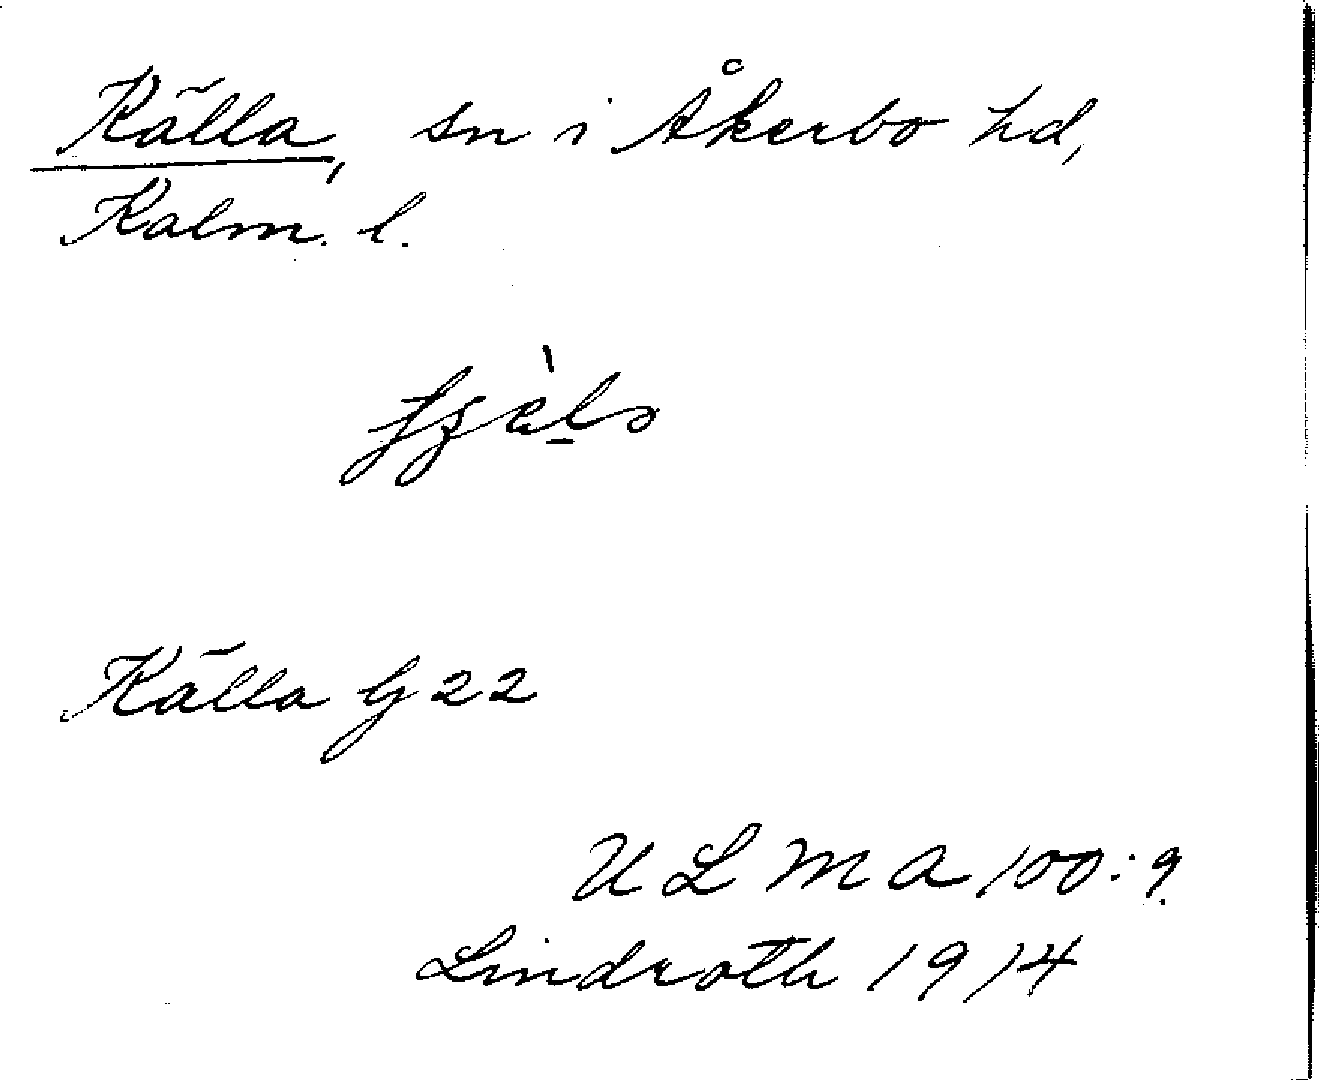 Källa, sn i Åkerbo hd,
Kalm. l.
Källa G 22
ULMA 100:9.
Lindroth 1914